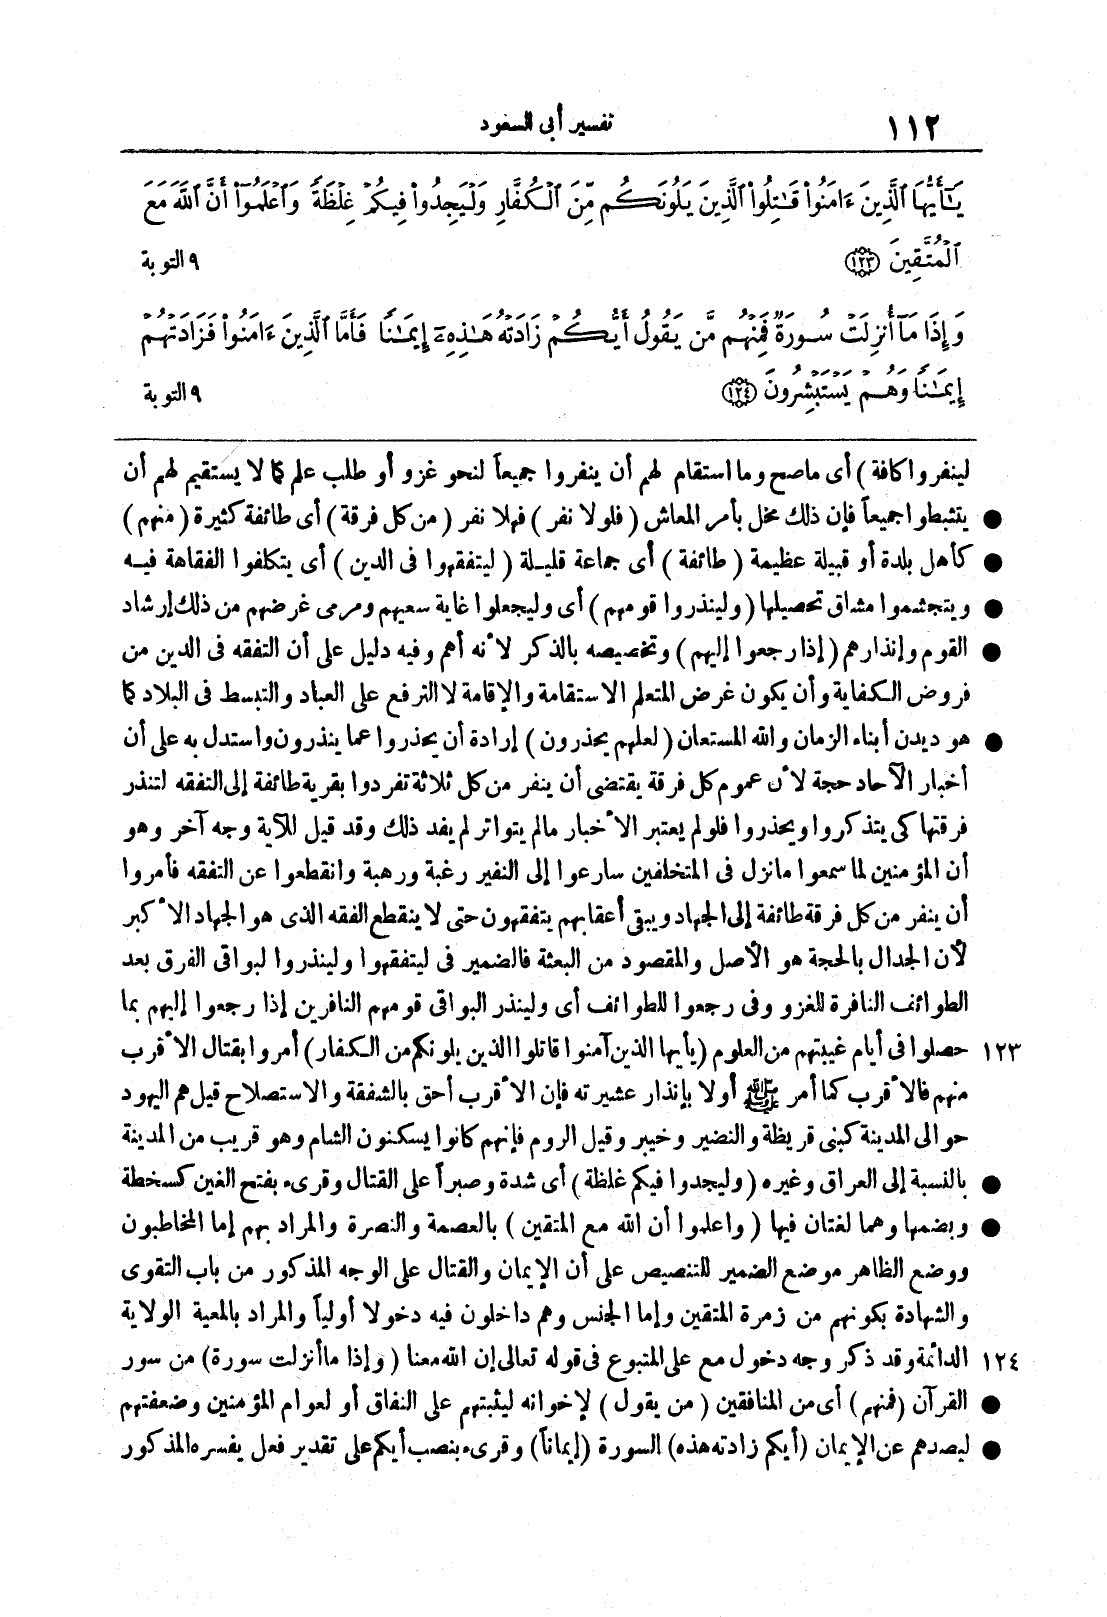 ١١٢
تفسير أبى السعود
يَٰٓأَيُّهَا ٱلَّذِينَ ءَامَنُواْ قَٰتِلُواْ ٱلَّذِينَ يَلُونَكُم مِّنَ ٱلْكُفَّارِ وَلْيَجِدُواْ فِيكُمْ غِلْظَةً وَٱعْلَمُوٓاْ أَنَّ ٱللَّهَ مَعَ
ٱلْمُتَّقِينَ ﴿١٢٣﴾ ٩ التوبة
وَإِذَا مَآ أُنزِلَتْ سُورَةٌ فَمِنْهُم مَّن يَقُولُ أَيُّكُمْ زَادَتْهُ هَٰذِهِۦٓ إِيمَٰنًا فَأَمَّا ٱلَّذِينَ ءَامَنُواْ فَزَادَتْهُمْ
إِيمَٰنًا وَهُمْ يَسْتَبْشِرُونَ ﴿١٢٤﴾ ٩ التوبة
لينفروا كافة) أى ماصح وما استقام لهم أن ينفروا جميعاً لنحو غزو أو طلب علم كما لا يستقيم لهم أن
● يتثبطوا جميعاً فإن ذلك مخل بأمر المعاش (فلولا نفر) فهلا نفر (من كل فرقة) أى طائفة كثيرة (منهم)
● كأهل بلدة أو قبيلة عظيمة (طائفة) أى جماعة قليلة (ليتفقهوا فى الدين) أى يتكلفوا الفقاهة فيه
● ويتجشموا مشاق تحصيلها (ولينذروا قومهم) أى وليجعلوا غاية سعيهم ومرمى غرضهم من ذلك إرشاد
● القوم وإنذارهم (إذا رجعوا إليهم) وتخصيصه بالذكر لأنه أهم وفيه دليل على أن التفقه فى الدين من
فروض الكفاية وأن يكون غرض المتعلم الاستقامة والإقامة لا الترفع على العباد والتبسط فى البلاد كما
● هو ديدن أبناء الزمان والله المستعان (لعلهم يحذرون) إرادة أن يحذروا عما ينذرون واستدل به على أن
أخبار الآحاد حجة لأن عموم كل فرقة يقتضى أن ينفر من كل ثلاثة تفردوا بقرية طائفة إلى التفقه لتنذر
فرقتها كى يتذكروا ويحذروا فلو لم يعتبر الأخبار مالم يتواتر لم يفد ذلك وقد قيل للآية وجه آخر وهو
أن المؤمنين لما سمعوا مانزل فى المتخلفين سارعوا إلى النفير رغبة ورهبة وانقطعوا عن التفقه فأمروا
أن ينفر من كل فرقة طائفة إلى الجهاد ويبقى أعقابهم يتفقهون حتى لا ينقطع الفقه الذى هو الجهاد الأكبر
لأن الجدال بالحجة هو الأصل والمقصود من البعثة فالضمير فى ليتفقهوا ولينذروا لبواقى الفرق بعد
الطوائف النافرة للغزو وفى رجعوا للطوائف أى ولينذر البواقى قومهم النافرين إذا رجعوا إليهم بما
١٢٣ حصلوا فى أيام غيبتهم من العلوم (يأيها الذين آمنوا قاتلوا الذين يلونكم من الكفار) أمروا بقتال الأقرب
منهم فالأقرب كما أمر ﷺ أولا بإنذار عشيرته فإن الأقرب أحق بالشفقة والاستصلاح قيل هم اليهود
حوالى المدينة كبنى قريظة والنضير وخيبر وقيل الروم فإنهم كانوا يسكنون الشام وهو قريب من المدينة
● بالنسبة إلى العراق وغيره (وليجدوا فيكم غلظة) أى شدة وصبراً على القتال وقرىء بفتح الغين كسخطة
● وبضمها وهما لغتان فيها (واعلموا أن الله مع المتقين) بالعصمة والنصرة والمراد بهم إما المخاطبون
ووضع الظاهر موضع الضمير للتنصيص على أن الإيمان والقتال على الوجه المذكور من باب التقوى
والشهادة بكونهم من زمرة المتقين وإما الجنس وهم داخلون فيه دخولا أولياً والمراد بالمعية الولاية
١٢٤ الدائمة وقد ذكر وجه دخول مع على المتبوع فى قوله تعالى إن الله معنا (وإذا ما أنزلت سورة) من سور
● القرآن (فمنهم) أى من المنافقين (من يقول) لإخوانه ليثبتهم على النفاق أو لعوام المؤمنين وضعفتهم
● ليصدهم عن الإيمان (أيكم زادته هذه) السورة (إيماناً) وقرىء بنصب أيكم على تقدير فعل يفسره المذكور